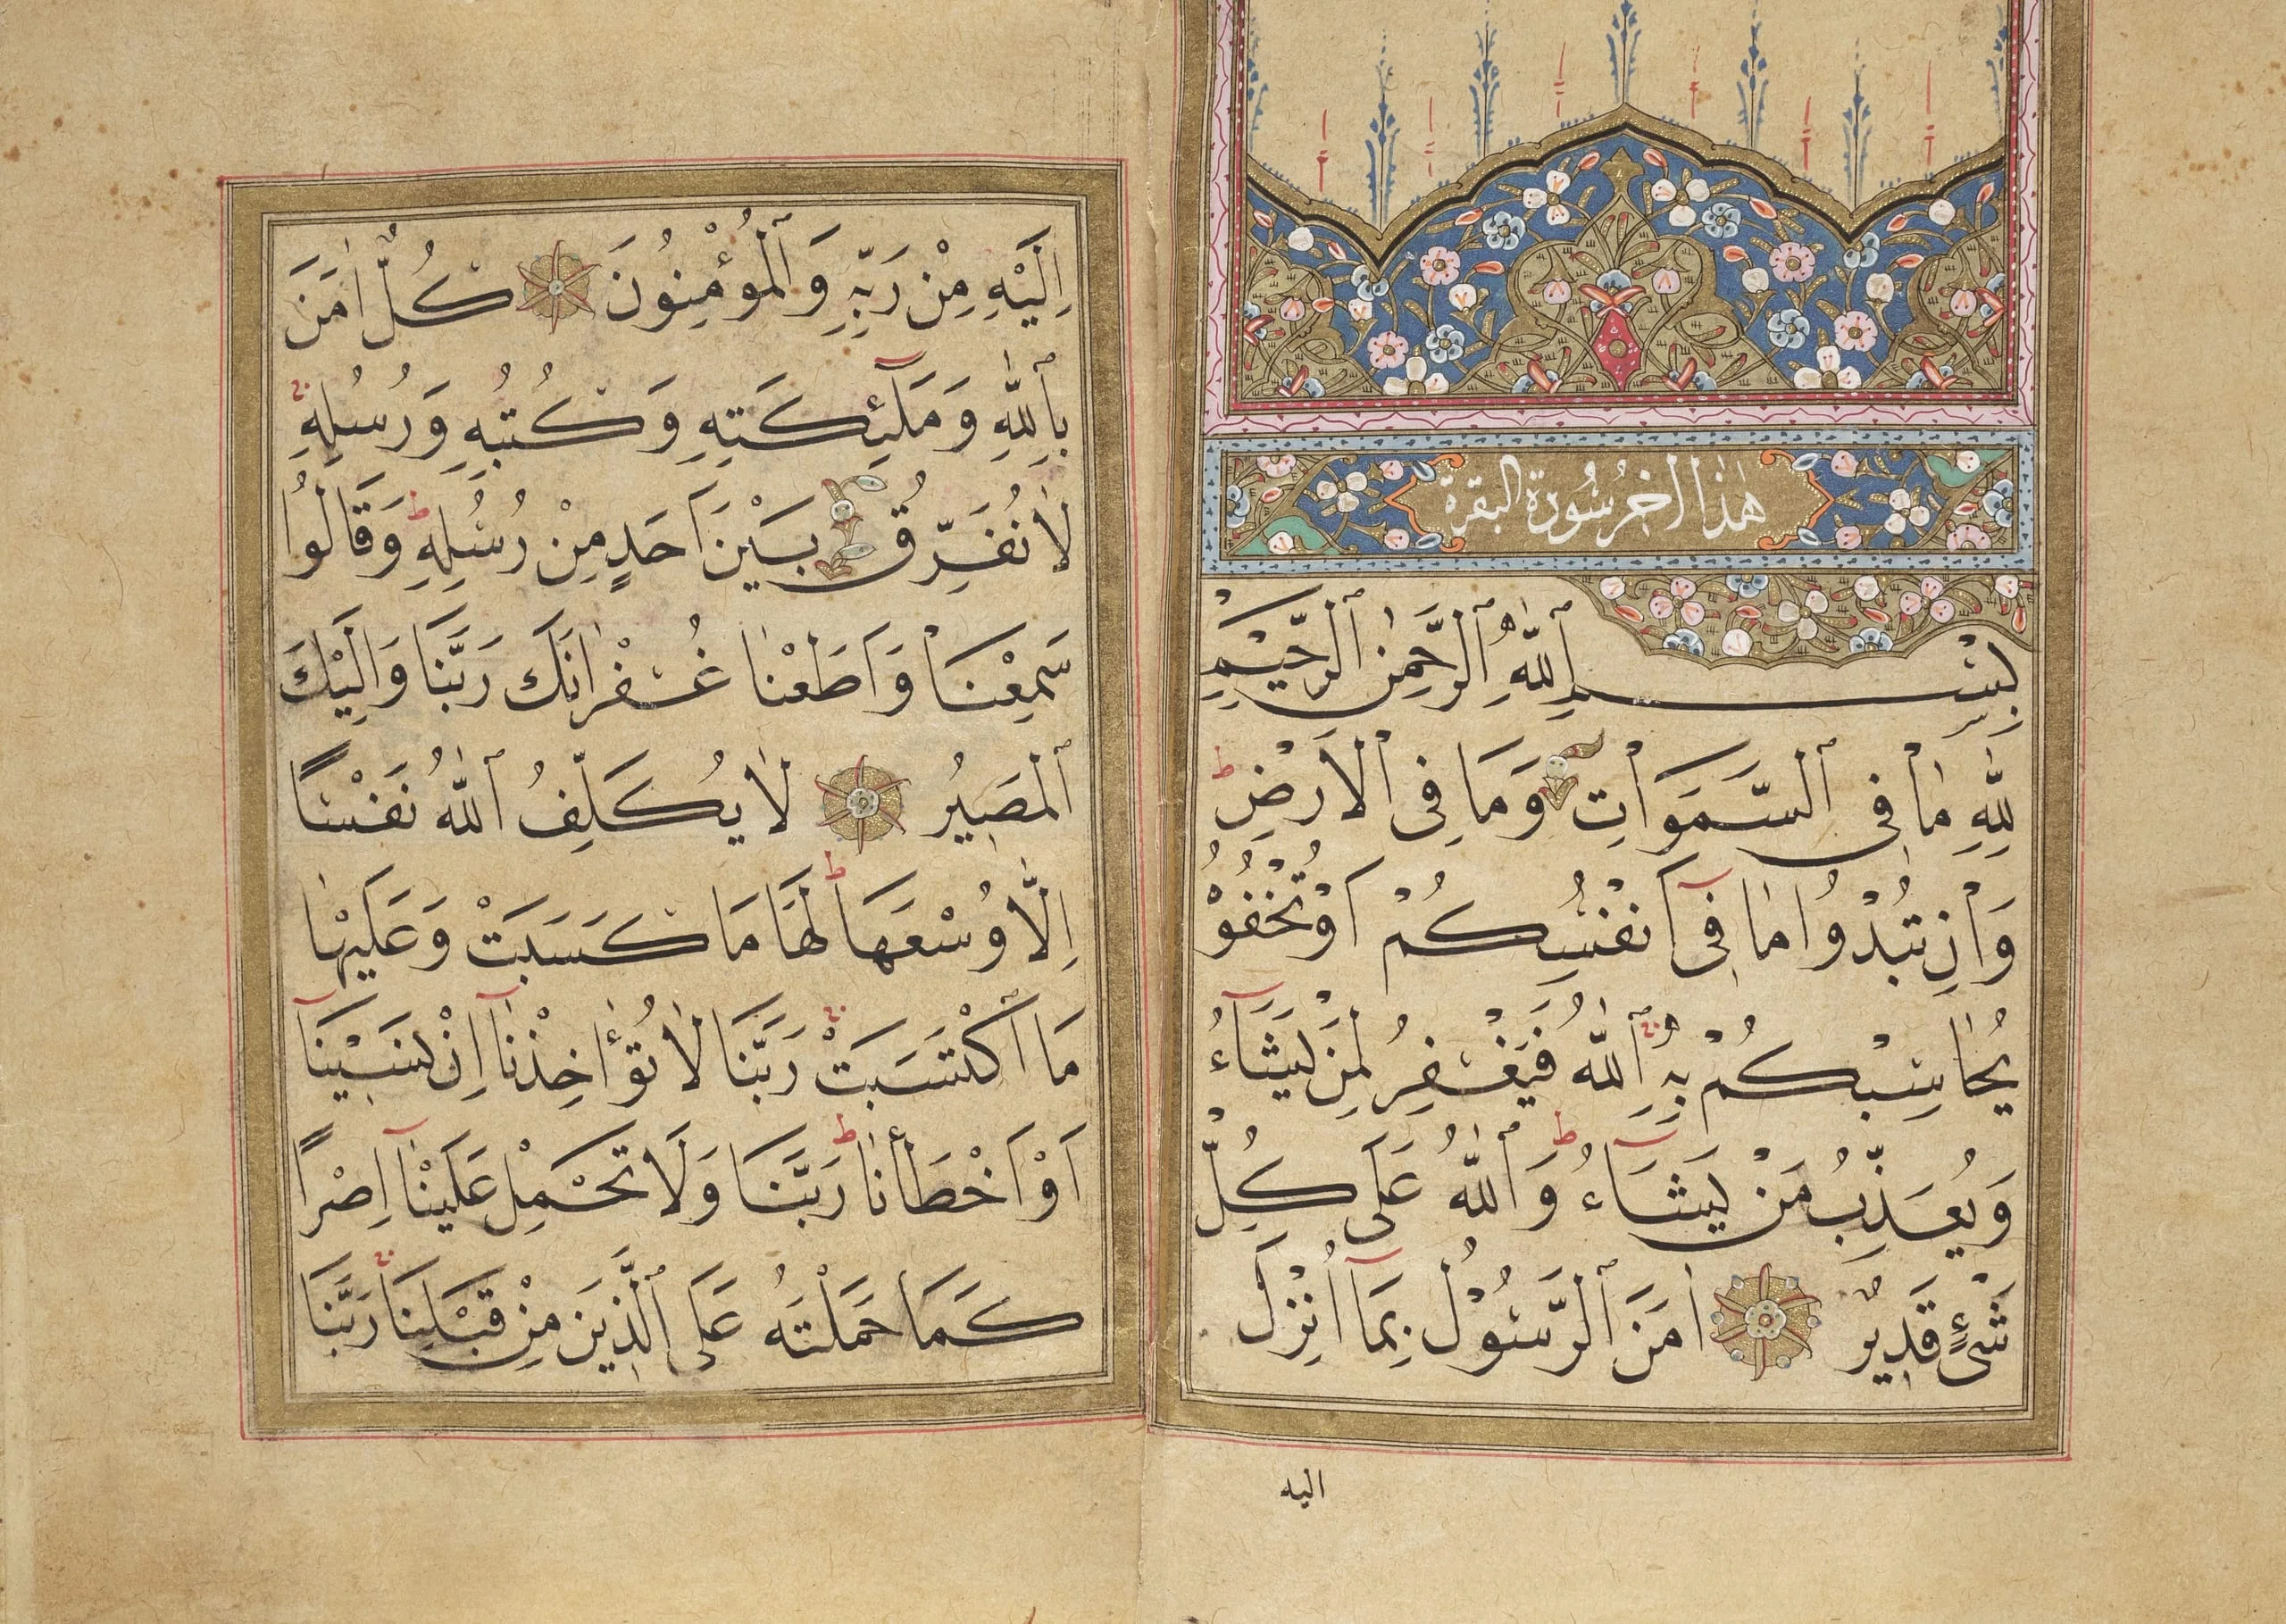 هٰذَا اٰخِرُ سُورَةِ البقرة
بِسْمِ ٱللّٰهِ ٱلرَّحْمٰنِ ٱلرَّحِيْمِ
لِلّٰهِ مَا فِى ٱلسَّمٰوَاتِ وَمَا فِى ٱلْاَرْضِ ط
وَاِنْ تُبْدُوا مَا فِىٓ اَنْفُسِكُمْ اَوْ تُخْفُوْهُ
يُحَاسِبْكُمْ بِهِ ٱللّٰهُ فَيَغْفِرُ لِمَنْ يَشَآءُ
وَيُعَذِّبُ مَنْ يَشَآءُ ط وَٱللّٰهُ عَلٰى كُلِّ
شَىْءٍ قَدِيْرٌ اٰمَنَ ٱلرَّسُوْلُ بِمَآ اُنْزِلَ
اليه
اِلَيْهِ مِنْ رَبِّهٖ وَٱلْمُؤْمِنُونَ كُلٌّ اٰمَنَ
بِٱللّٰهِ وَمَلٰٓئِكَتِهِ وَكُتُبِهِ وَرُسُلِهِ
لَا نُفَرِّقُ بَيْنَ اَحَدٍ مِنْ رُسُلِهِ ط وَقَالُوا
سَمِعْنَا وَاَطَعْنَا غُفْرَانَكَ رَبَّنَا وَاِلَيْكَ
ٱلْمَصِيْرُ لَا يُكَلِّفُ ٱللّٰهُ نَفْسًا
اِلَّا وُسْعَهَا ط لَهَا مَا كَسَبَتْ وَعَلَيْهَا
مَا ٱكْتَسَبَتْ رَبَّنَا لَا تُؤَاخِذْنَآ اِنْ نَسِيْنَآ
اَوْ اَخْطَأْنَا ط رَبَّنَا وَلَا تَحْمِلْ عَلَيْنَآ اِصْرًا
كَمَا حَمَلْتَهُ عَلَى ٱلَّذِيْنَ مِنْ قَبْلِنَا رَبَّنَا